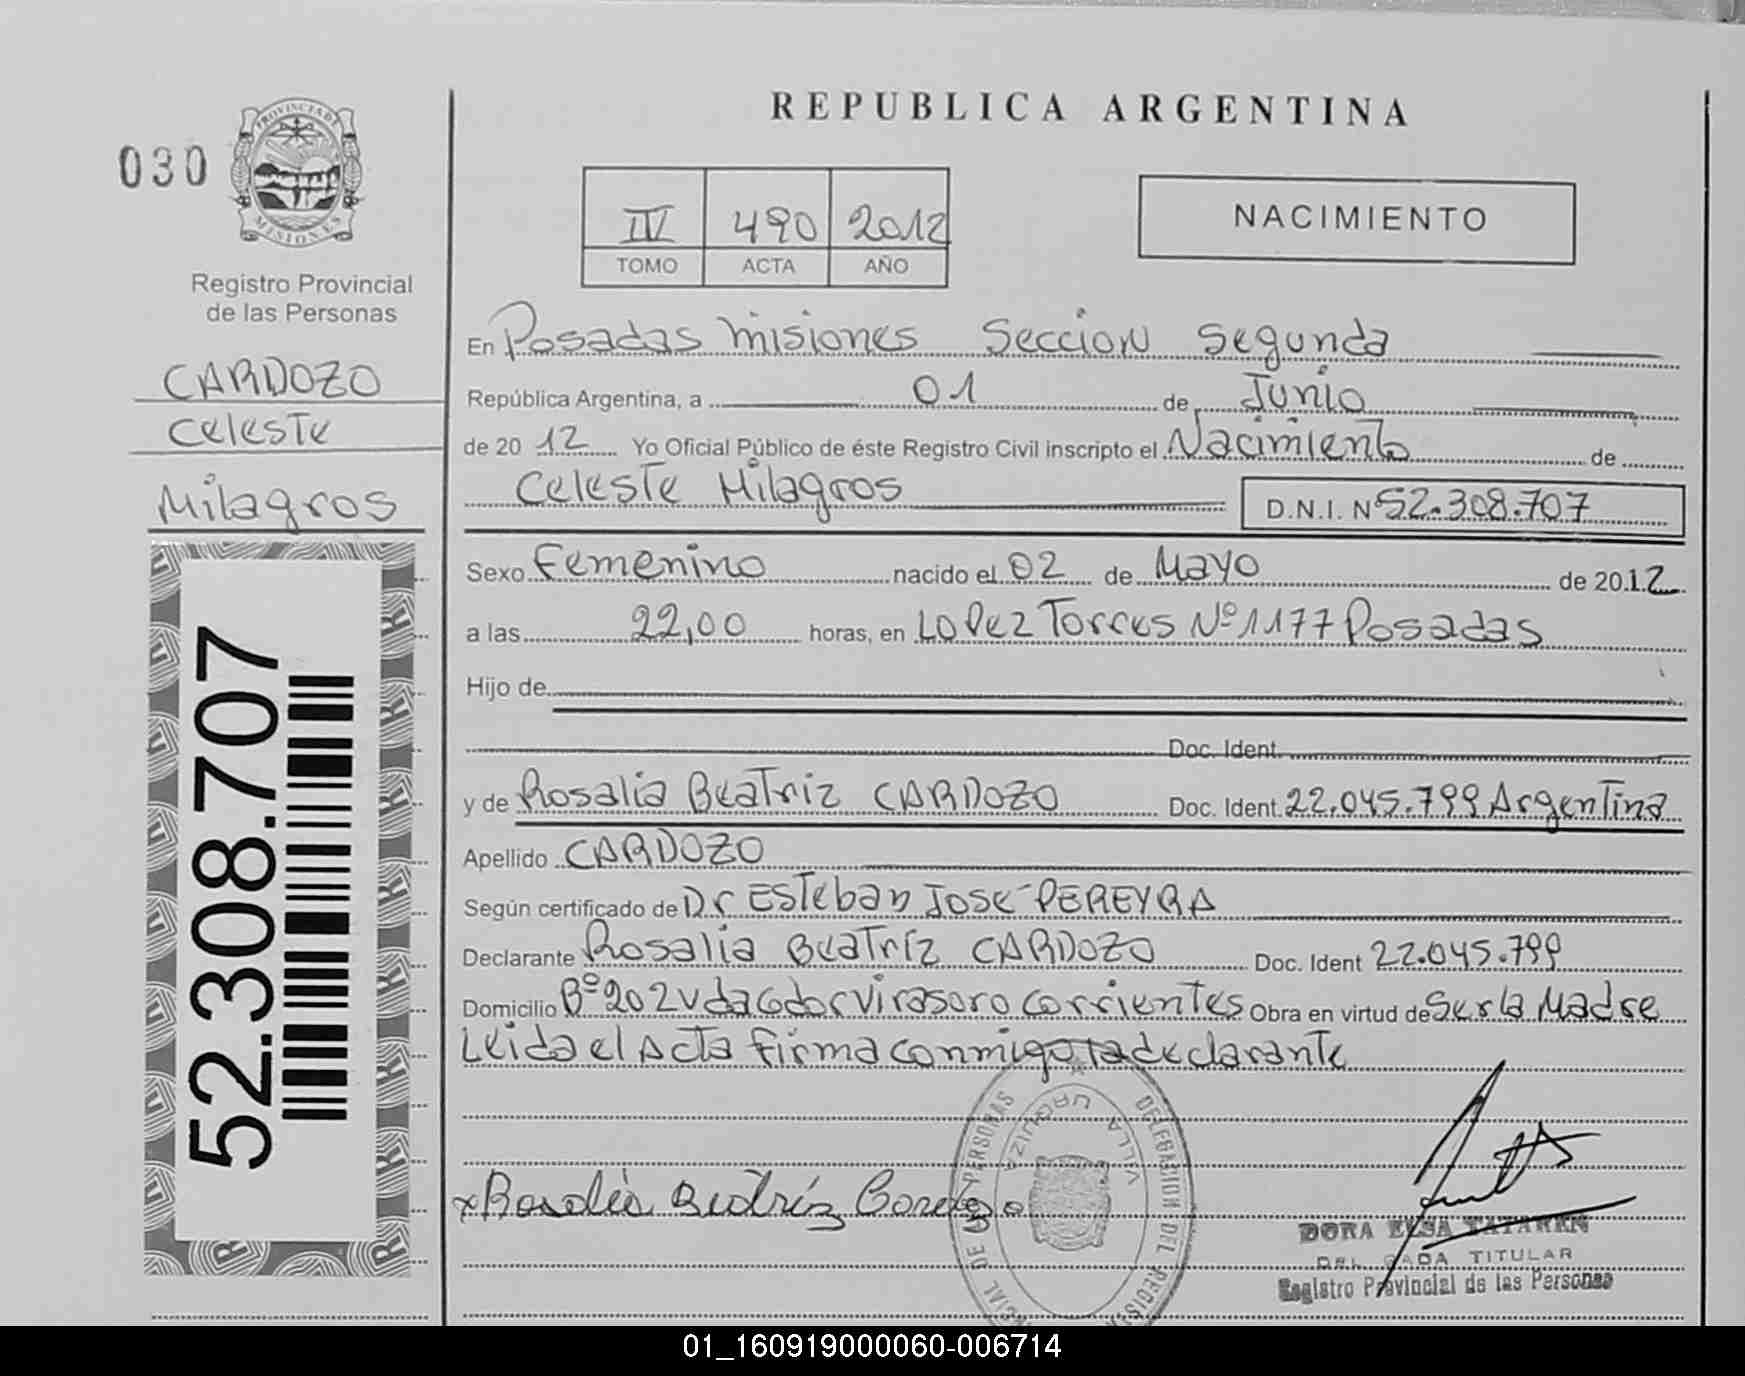 REPUBLICA ARGENTINA
030
PROVINCIA DE
MISIONES
Registro Provincial
de las Personas
CARDOZO
Celeste
Milagros
52.308.707
IV 490 2012
TOMO ACTA AÑO
NACIMIENTO
En Posadas Misiones Seccion Segunda
República Argentina, a 01 de Junio
de 20 12 Yo Oficial Público de éste Registro Civil inscripto el Nacimiento de
Celeste Milagros D.N.I. Nº 52.308.707
Sexo Femenino nacido el 02 de Mayo de 20 12
a las 22,00 horas, en Lopez Torres Nº 1177 Posadas
Hijo de
Doc. Ident.
y de Rosalia Beatriz CARDOZO Doc. Ident. 22.045.799 Argentina
Apellido CARDOZO
Según certificado de Dr Esteban José PEREYRA
Declarante Rosalia Beatríz CARDOZO Doc. Ident 22.045.799
Domicilio Bº 202 Vda Gdor Virasoro Corrientes Obra en virtud de Ser la Madre
Leida el Acta Firma conmigo la declarante
VILLA URQUIZA
DELEGACION DEL
DE PERSONAS
x Rosalia Beatriz Cardozo
DORA ELSA
TITULAR
Registro Provincial de las Personas
01_160919000060-006714